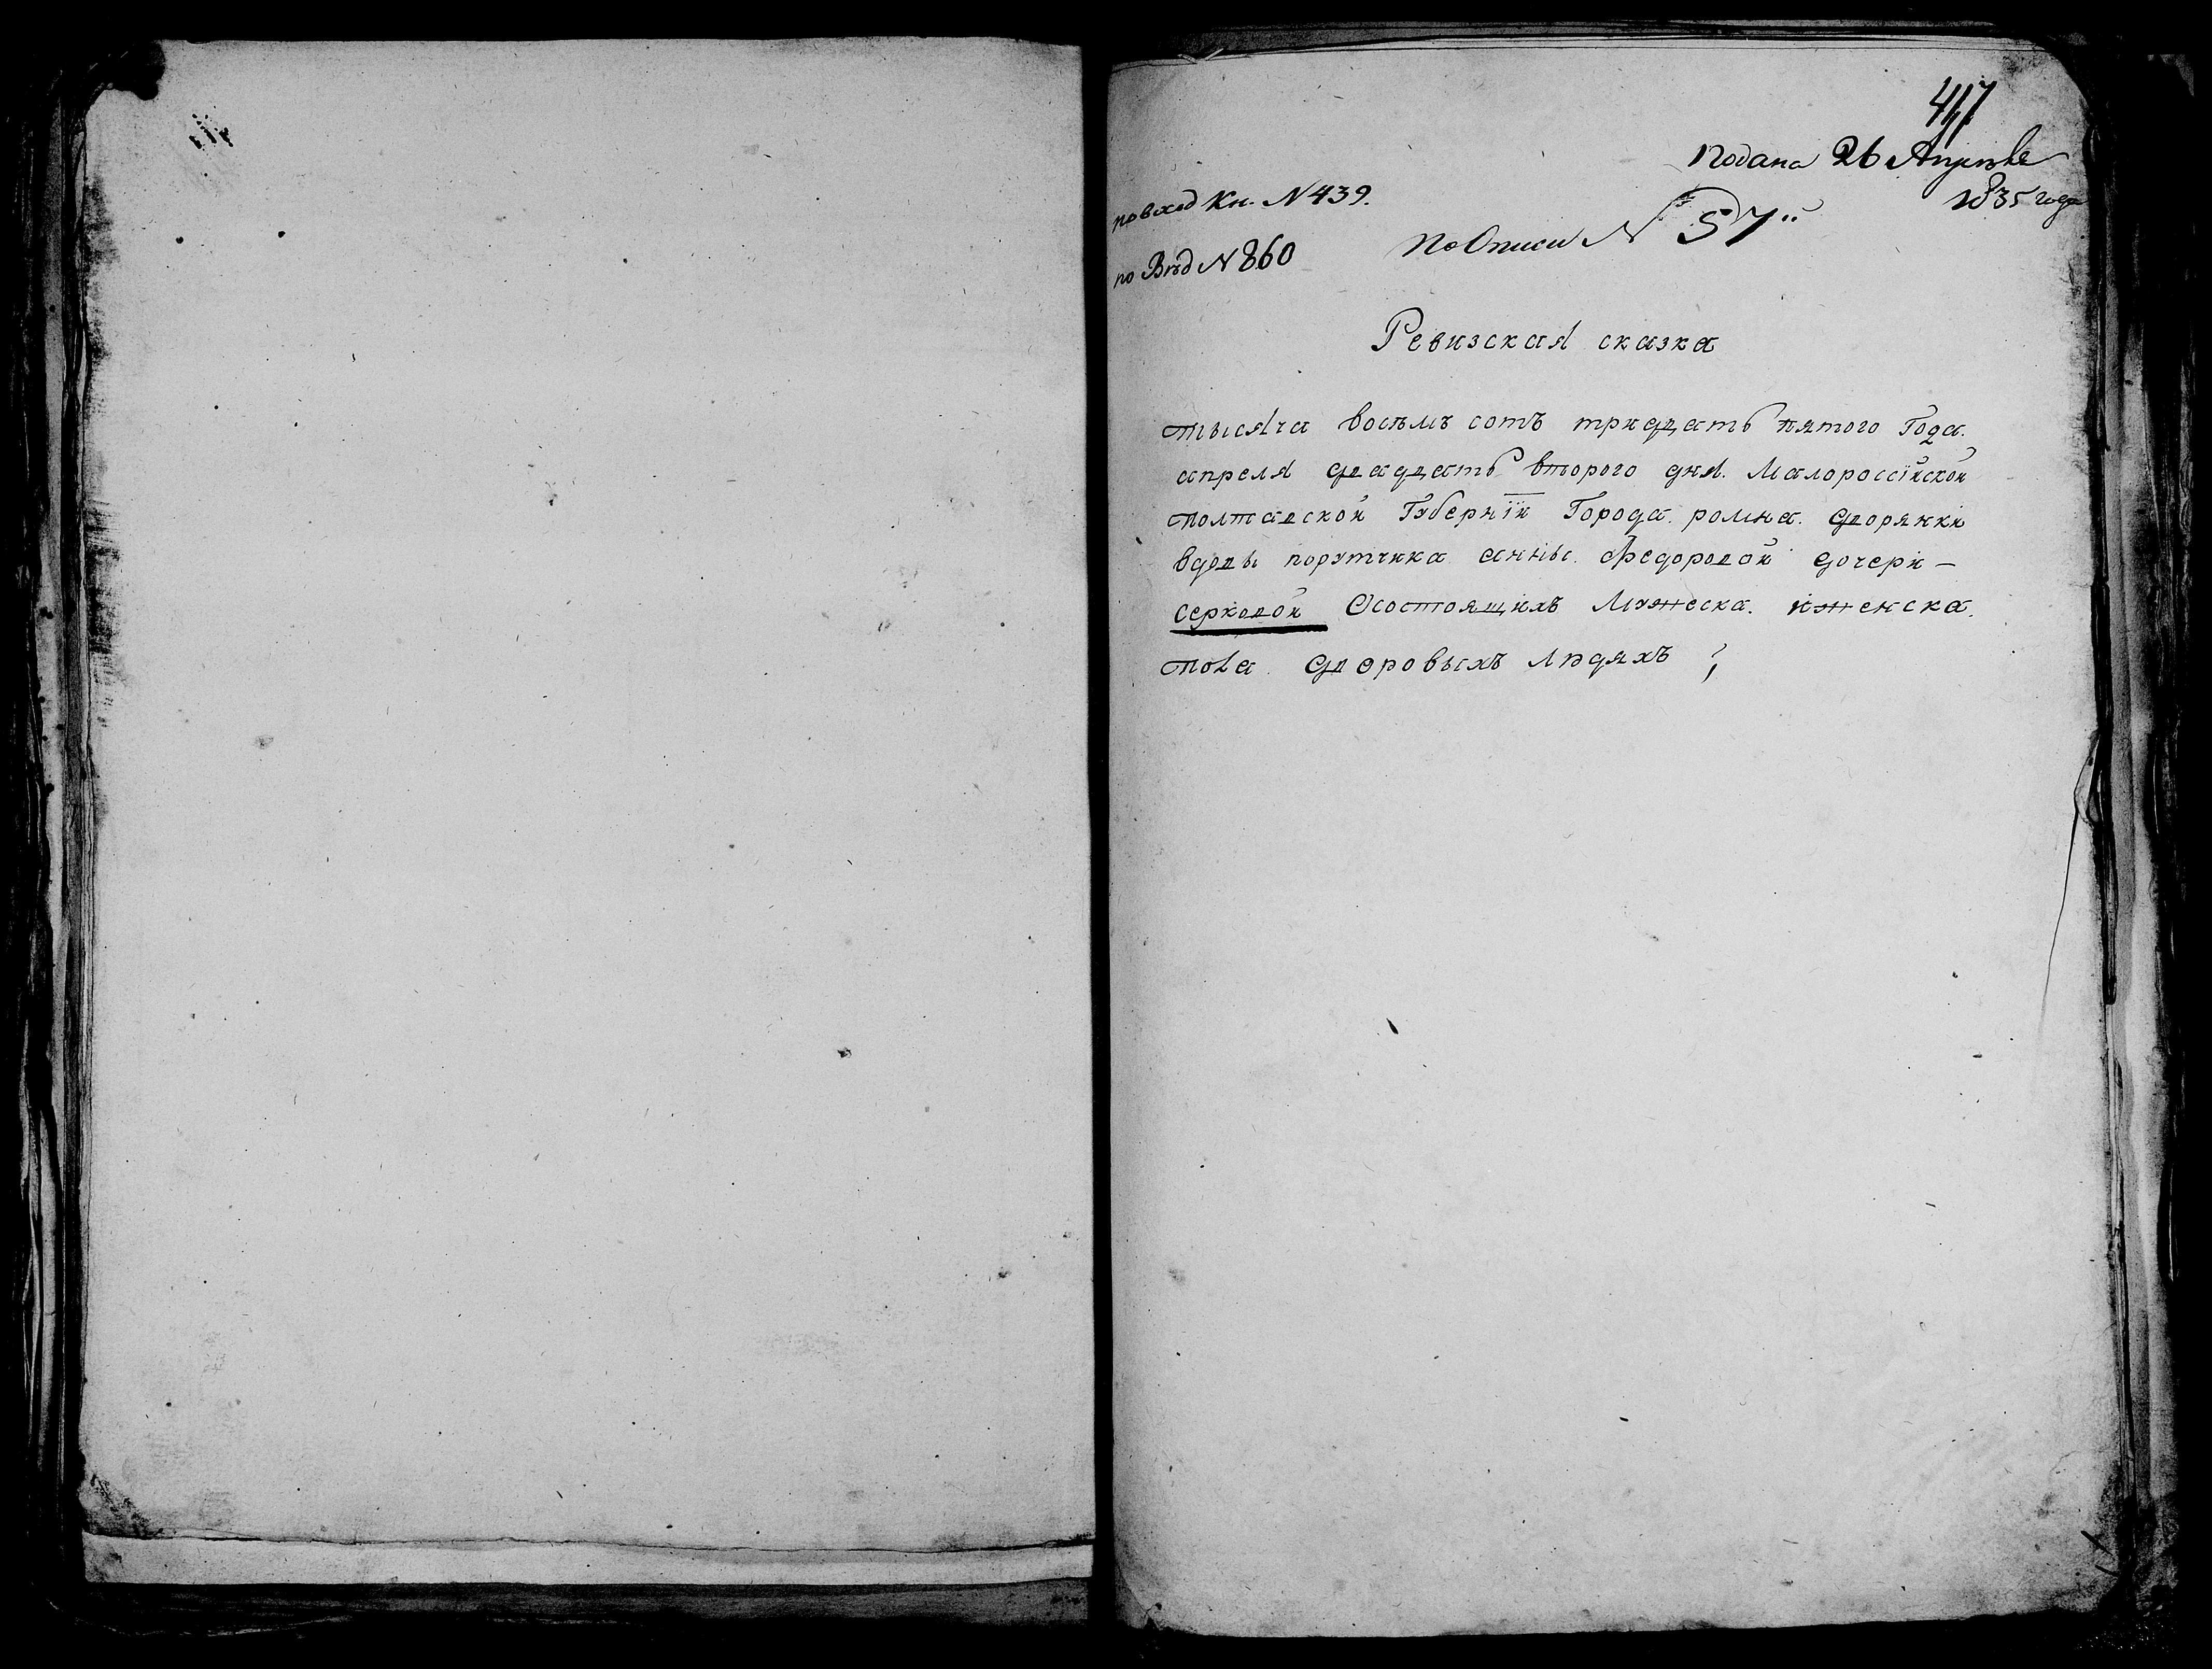 417
Подана 26 Апреля
1835 года
по вход Кн. N 439.
по Описи N 57
по Вѣд N 860
Ревизская сказка
тысяча восѣмъ сотъ тридцать пятого Года.
апреля двадцать второго дня. Малороссїйской
полтавской Губернїи Города. ромна. дворянки
вдовы порутчика анны. Федоровой дочери –
Серковой Осостоящихъ Мужеска. иженска.
пола. дворовыхъ людяхъ ;